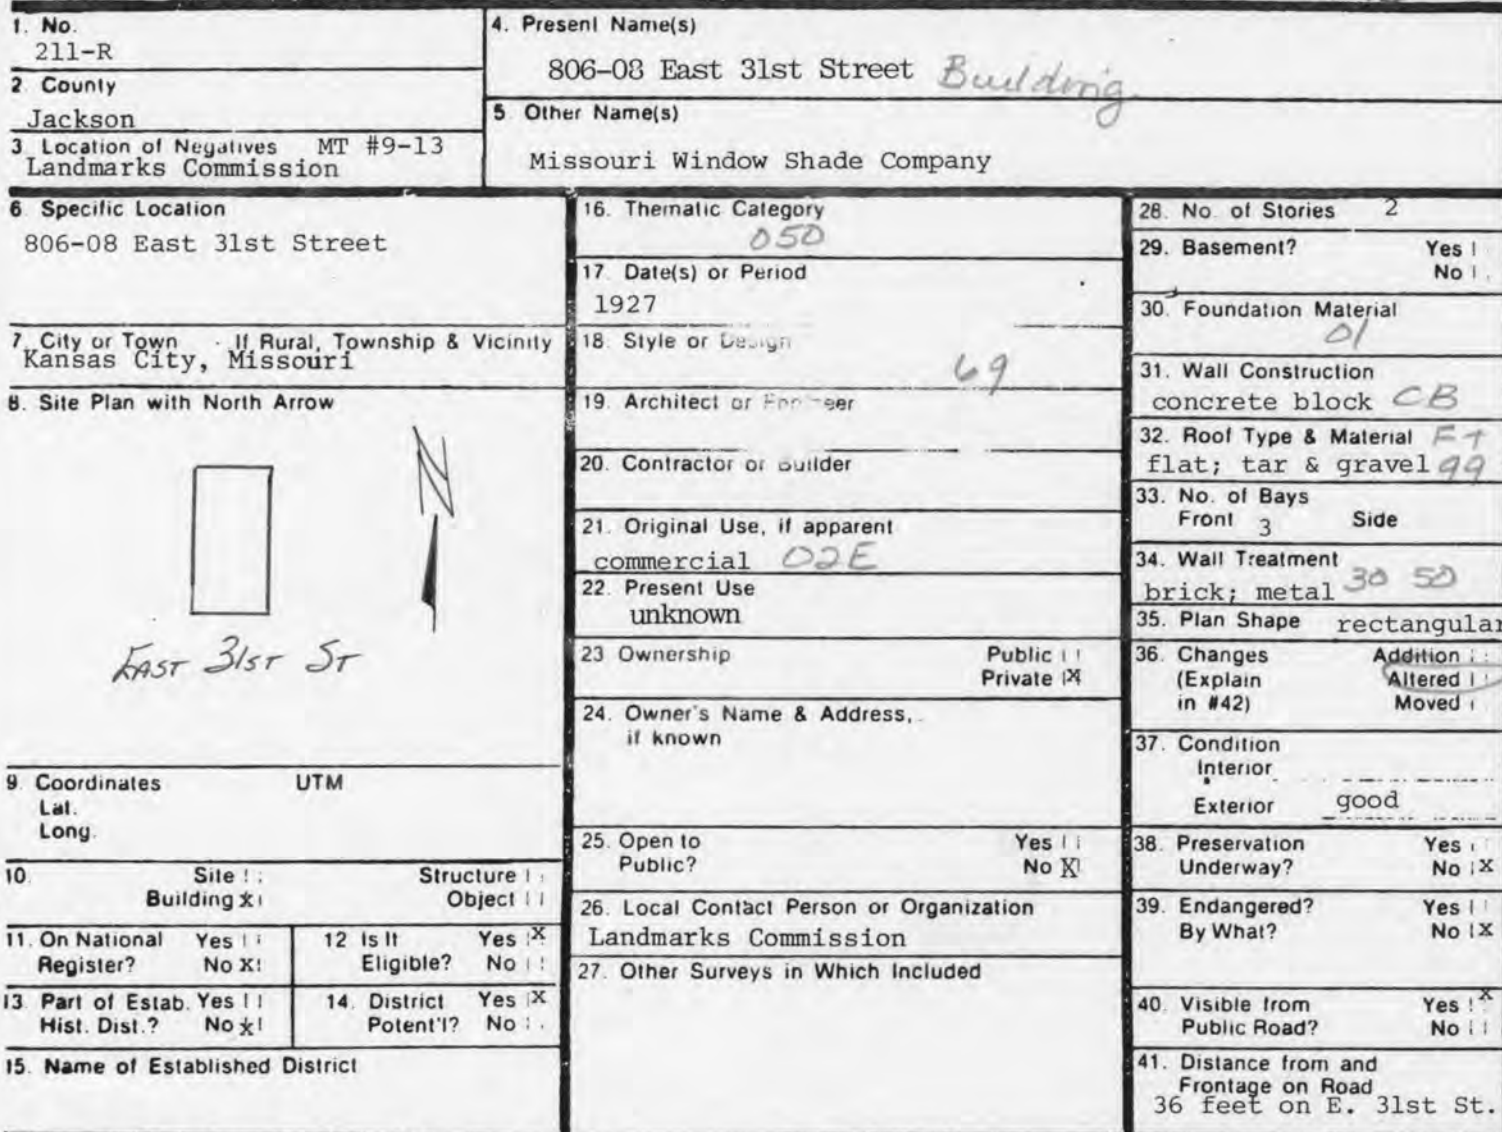 1. No.
211-R
2 County
Jackson
3 Location of Negatives MT #9-13
Landmarks Commission
4. Present Name(s)
806-08 East 31st Street Building
5 Other Name(s)
Missouri Window Shade Company
6 Specific Location
806-08 East 31st Street
7 City or Town If Rural, Township & Vicinity
Kansas City, Missouri
8. Site Plan with North Arrow
N
EAST 31ST ST
9. Coordinates UTM
Lat.
Long.
10. Site Structure
Building x Object
11. On National Yes
Register? No X
12 Is It Yes X
Eligible? No
13. Part of Estab. Yes
Hist. Dist.? No x
14. District Yes X
Potent'l? No
15. Name of Established District
16. Thematic Category
050
17. Date(s) or Period
1927
18. Style or Design
69
19. Architect or Engineer
20. Contractor or Builder
21. Original Use, if apparent
commercial 02E
22. Present Use
unknown
23 Ownership Public
Private X
24. Owner's Name & Address,
if known
25. Open to Yes
Public? No X
26. Local Contact Person or Organization
Landmarks Commission
27. Other Surveys in Which Included
28. No. of Stories 2
29. Basement? Yes
No
30. Foundation Material
01
31. Wall Construction
concrete block CB
32. Roof Type & Material FT
flat; tar & gravel 99
33. No. of Bays
Front 3 Side
34. Wall Treatment
brick; metal 30 50
35. Plan Shape rectangular
36. Changes Addition
(Explain Altered
in #42) Moved
37. Condition
Interior
Exterior good
38. Preservation Yes
Underway? No X
39. Endangered? Yes
By What? No X
40. Visible from Yes X
Public Road? No
41. Distance from and
Frontage on Road
36 feet on E. 31st St.